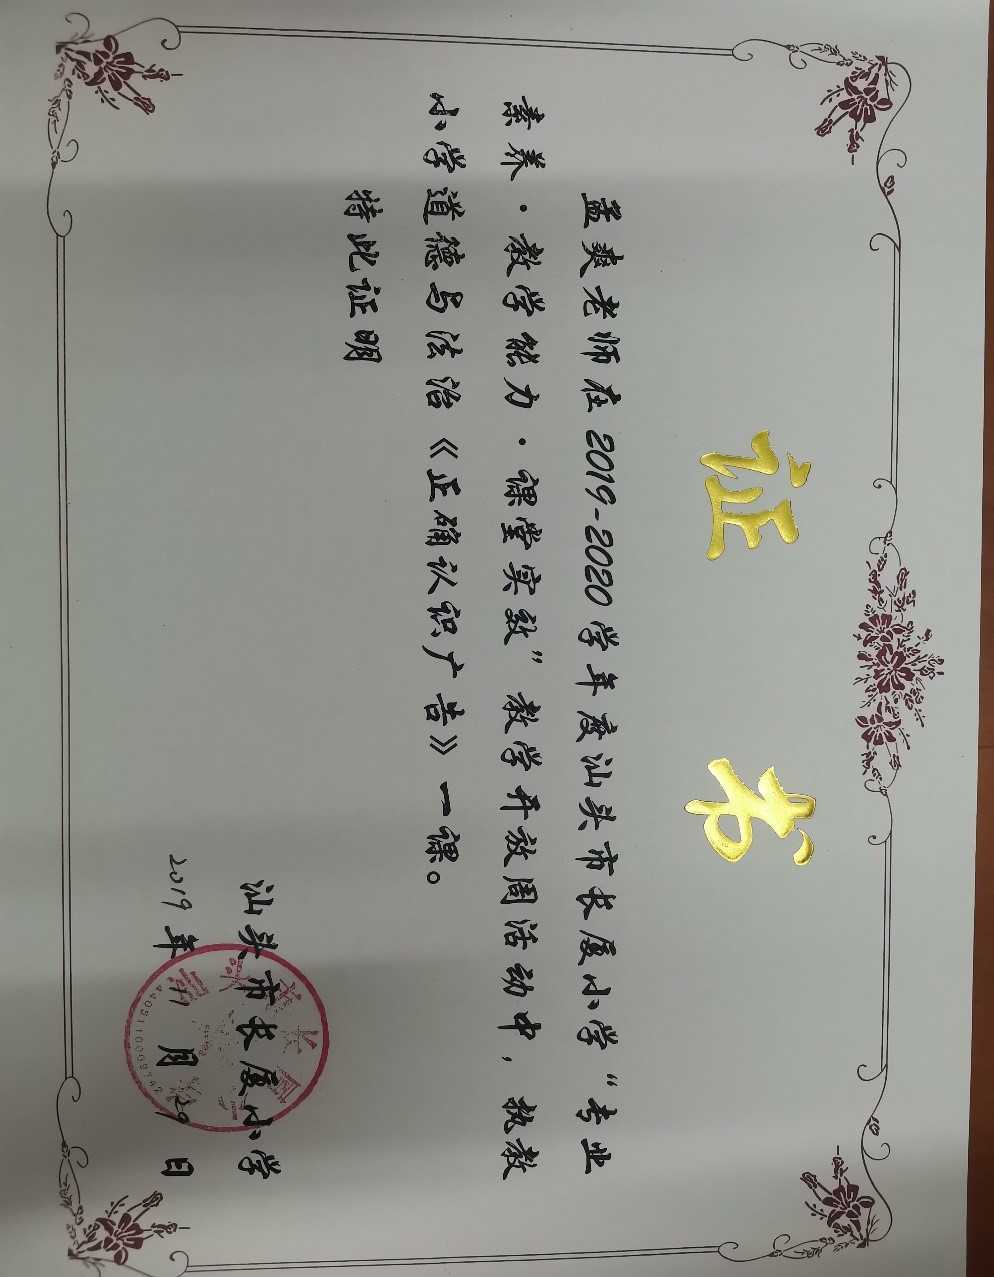 证书
孟爽老师在2019-2020学年度汕头市长厦小学“专业
素养·教学能力·课堂实效”教学开放周活动中，执教
小学道德与法治《正确认识广告》一课。
特此证明
汕头市长厦小学
2019年11月29日